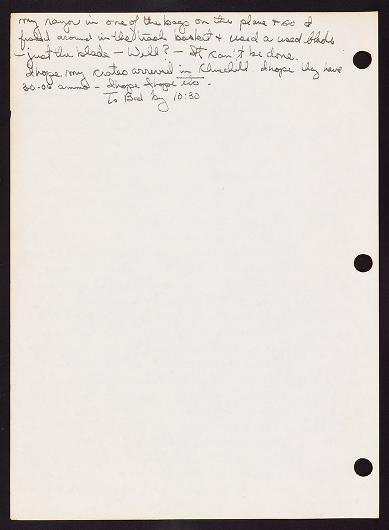 my razor in one of the bags on the plane + so I
fished around in the trash basket + used a used blade
- just the blade - Well? - It can't be done.
I hope my crates arrived in Churchill I hope they have
30-06 ammo - I hope I hope etc.
To Bed by 10:30